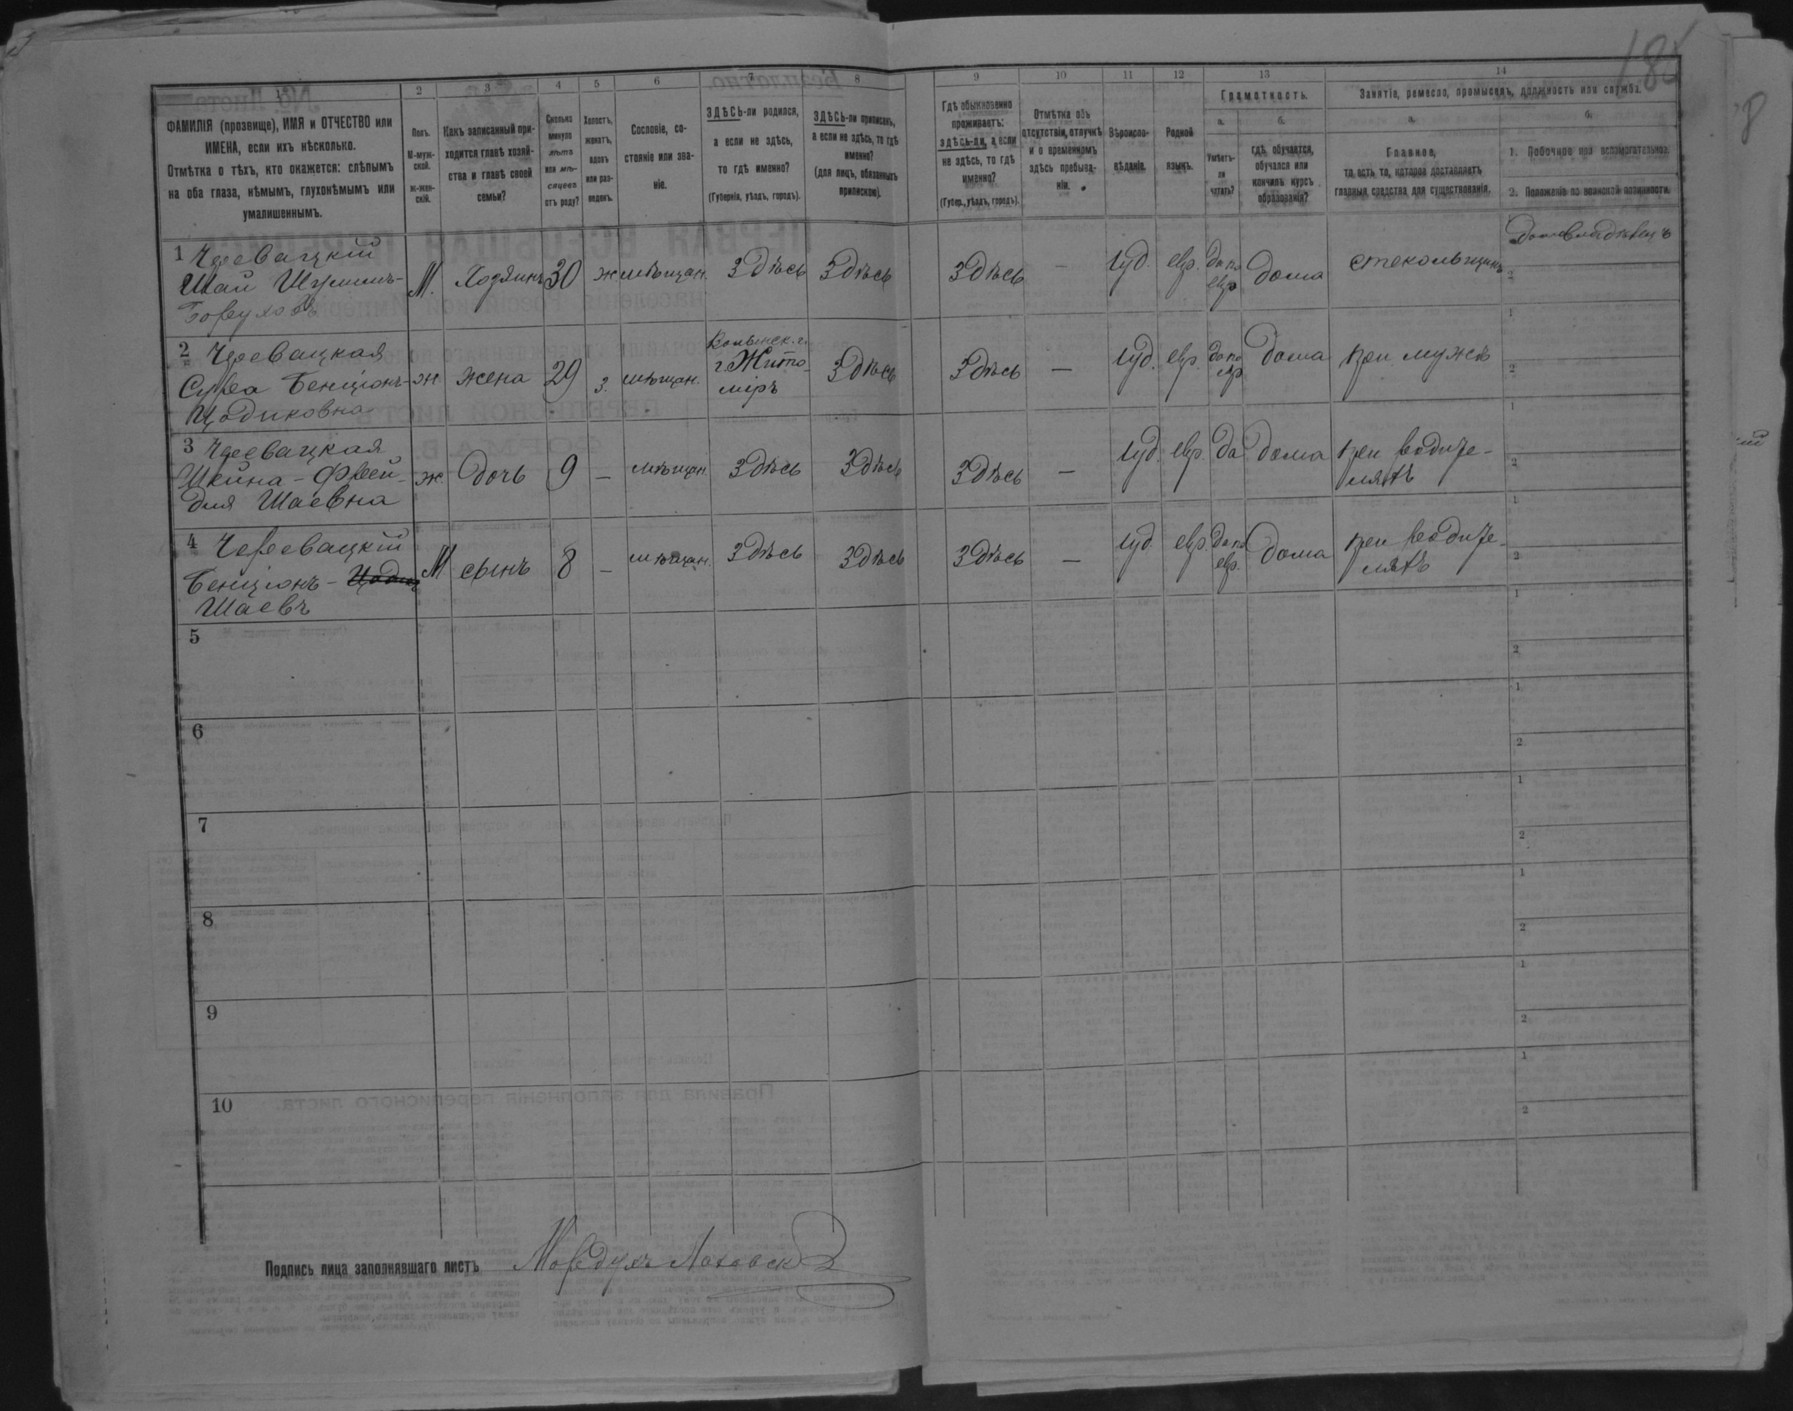 185
1
2
3
4
5
6
7
8
9
10
11
12
13
14
ФАМИЛІЯ (прозвище), ИМЯ и ОТЧЕСТВО или
ИМЕНА, если ихъ нѣсколько.
Отмѣтка о тѣхъ, кто окажется: слѣпымъ
на оба глаза, нѣмымъ, глухонѣмымъ или
умалишеннымъ.
Полъ.
М-муж-
ской.
Ж-жен-
скій.
Какъ записанный при-
ходится главѣ хозяй-
ства и главѣ своей
семьи?
Сколько
минуло
лѣтъ
или мѣ-
сяцевъ
отъ роду?
Холостъ,
женатъ,
вдовъ
или раз-
веденъ.
Сословіе, со-
стояніе или зва-
ніе.
ЗДѢСЬ-ли родился,
а если не здѣсь,
то гдѣ именно?
(Губернія, уѣздъ, городъ).
ЗДѢСЬ-ли приписанъ,
а если не здѣсь, то гдѣ
именно?
(для лицъ, обязанныхъ
припискою).
Гдѣ обыкновенно
проживаетъ:
здѣсь-ли, а если
не здѣсь, то гдѣ
именно?
(Губер., уѣздъ, городъ).
Отмѣтка объ
отсутствіи, отлучкѣ
и о временномъ
здѣсь пребыва-
ніи.
Вѣроиспо-
вѣданіе.
Родной
языкъ.
Грамотность.
а.
Умѣетъ-
ли
читать?
б.
гдѣ обучается,
обучался или
кончилъ курсъ
образованія?
Занятіе, ремесло, промыселъ, должность или служба.
а.
Главное,
то есть то, которое доставляетъ
главныя средства для существованія.
б.
1. Побочное или вспомогательное.
2. Положеніе по воинской повинности.
1 Черевацкій
Шай Шулимъ-
Боруховъ
М.
Хозяинъ
30
ж.
мѣщан.
Здѣсь
Здѣсь
Здѣсь
—
іуд.
евр.
да по
евр.
дома
стекольщикъ
Домовладѣлецъ
2
2 Черевацкая
Сура Бенціонъ-
Цодиковна
ж
жена
29
з.
мѣщан.
Волынск. г.
г. Жито-
міръ
Здѣсь
Здѣсь
—
іуд.
евр.
да по
евр.
дома
при мужѣ
1
2
3 Черевацкая
Шейна - Фрей-
для Шаевна
ж
дочь
9
—
мѣщан.
Здѣсь
Здѣсь
Здѣсь
—
іуд.
евр.
да
дома
при родите-
ляхъ
1
2
4 Черевацкій
Бенціонъ -
Шаевъ
М
сынъ
8
—
мѣщан.
Здѣсь
Здѣсь
Здѣсь
—
іуд
евр.
да по
евр.
дома
при родите-
ляхъ
1
2
5
1
2
6
1
2
7
1
2
8
1
2
9
1
2
10
1
2
Подпись лица заполнявшаго листъ Мордухъ